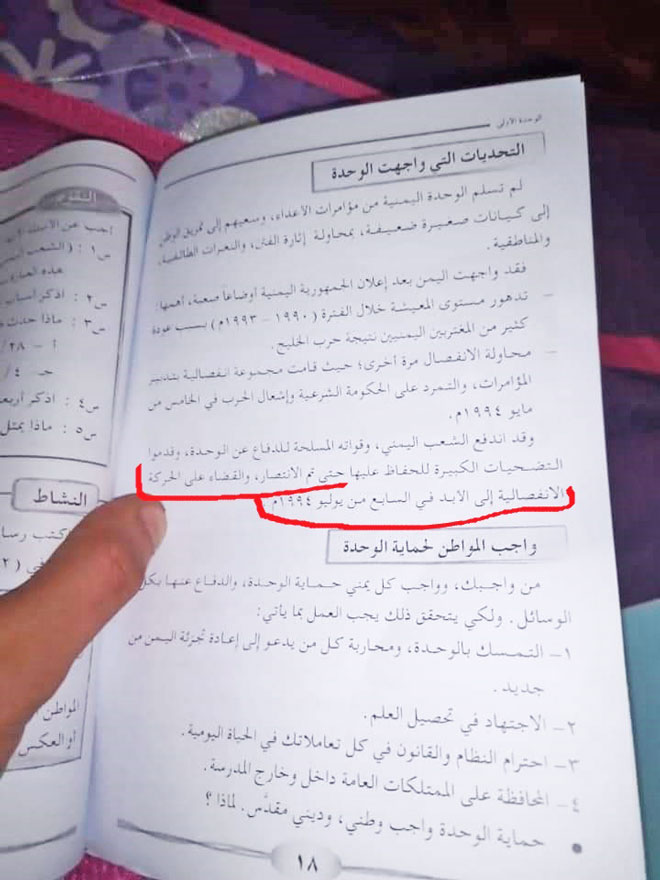 الوحدة الأولى
التحديات التي واجهت الوحدة
لم تسلم الوحدة اليمنية من مؤامرات الأعداء، وسعيهم إلى تمزيق الوطن
إلى كيانات صغيرة ضعيفة، بمحاولة إثارة الفتن، والنعرات الطائفية،
والمناطقية.
فقد واجهت اليمن بعد إعلان الجمهورية اليمنية أوضاعاً صعبة، أهمها:
– تدهور مستوى المعيشة خلال الفترة (١٩٩٠ – ١٩٩٣م) بسبب عودة
كثير من المغتربين اليمنيين نتيجة حرب الخليج.
– محاولة الانفصال مرة أخرى؛ حيث قامت مجموعة انفصالية بتدبير
المؤامرات، والتمرد على الحكومة الشرعية وإشعال الحرب في الخامس من
مايو ١٩٩٤م.
وقد اندفع الشعب اليمني، وقواته المسلحة للدفاع عن الوحدة، وقدموا
التضحيات الكبيرة للحفاظ عليها حتى تم الانتصار، والقضاء على الحركة
الانفصالية إلى الأبد في السابع من يوليو ١٩٩٤م
واجب المواطن لحماية الوحدة
من واجبك، وواجب كل يمني حماية الوحدة، والدفاع عنها بكل
الوسائل. ولكي يتحقق ذلك يجب العمل بما يأتي:
١– التمسك بالوحدة، ومحاربة كل من يدعو إلى إعادة تجزئة اليمن من
جديد.
٢– الاجتهاد في تحصيل العلم.
٣– احترام النظام والقانون في كل تعاملاتك في الحياة اليومية.
٤– المحافظة على الممتلكات العامة داخل وخارج المدرسة.
• حماية الوحدة واجب وطني، وديني مقدَّس. لماذا؟
١٨
أجب عن الأسئلة
س١: (الشعب
هذه
س٢: اذكر أسباب
س٣: ماذا حدث
أ – ٢٨/
جـ ٤/
س٤: اذكر أربعة
س٥: ماذا يمثل
النشاط
كتب رسا
في (٢
المواطن
أو العكس